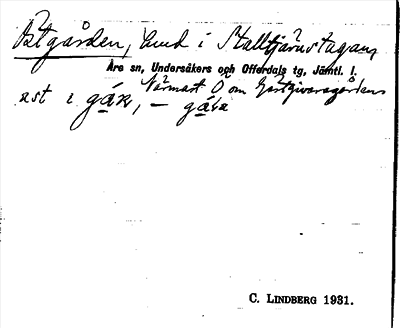 Östgården, hmd i Stalltjärnstugans
Åre sn, Undersåkers och Offerdals tg, Jämtl. l.
Närmast Ö om Gästgivaregårdens
äst i gák, –
C. LINDBERG 1931.